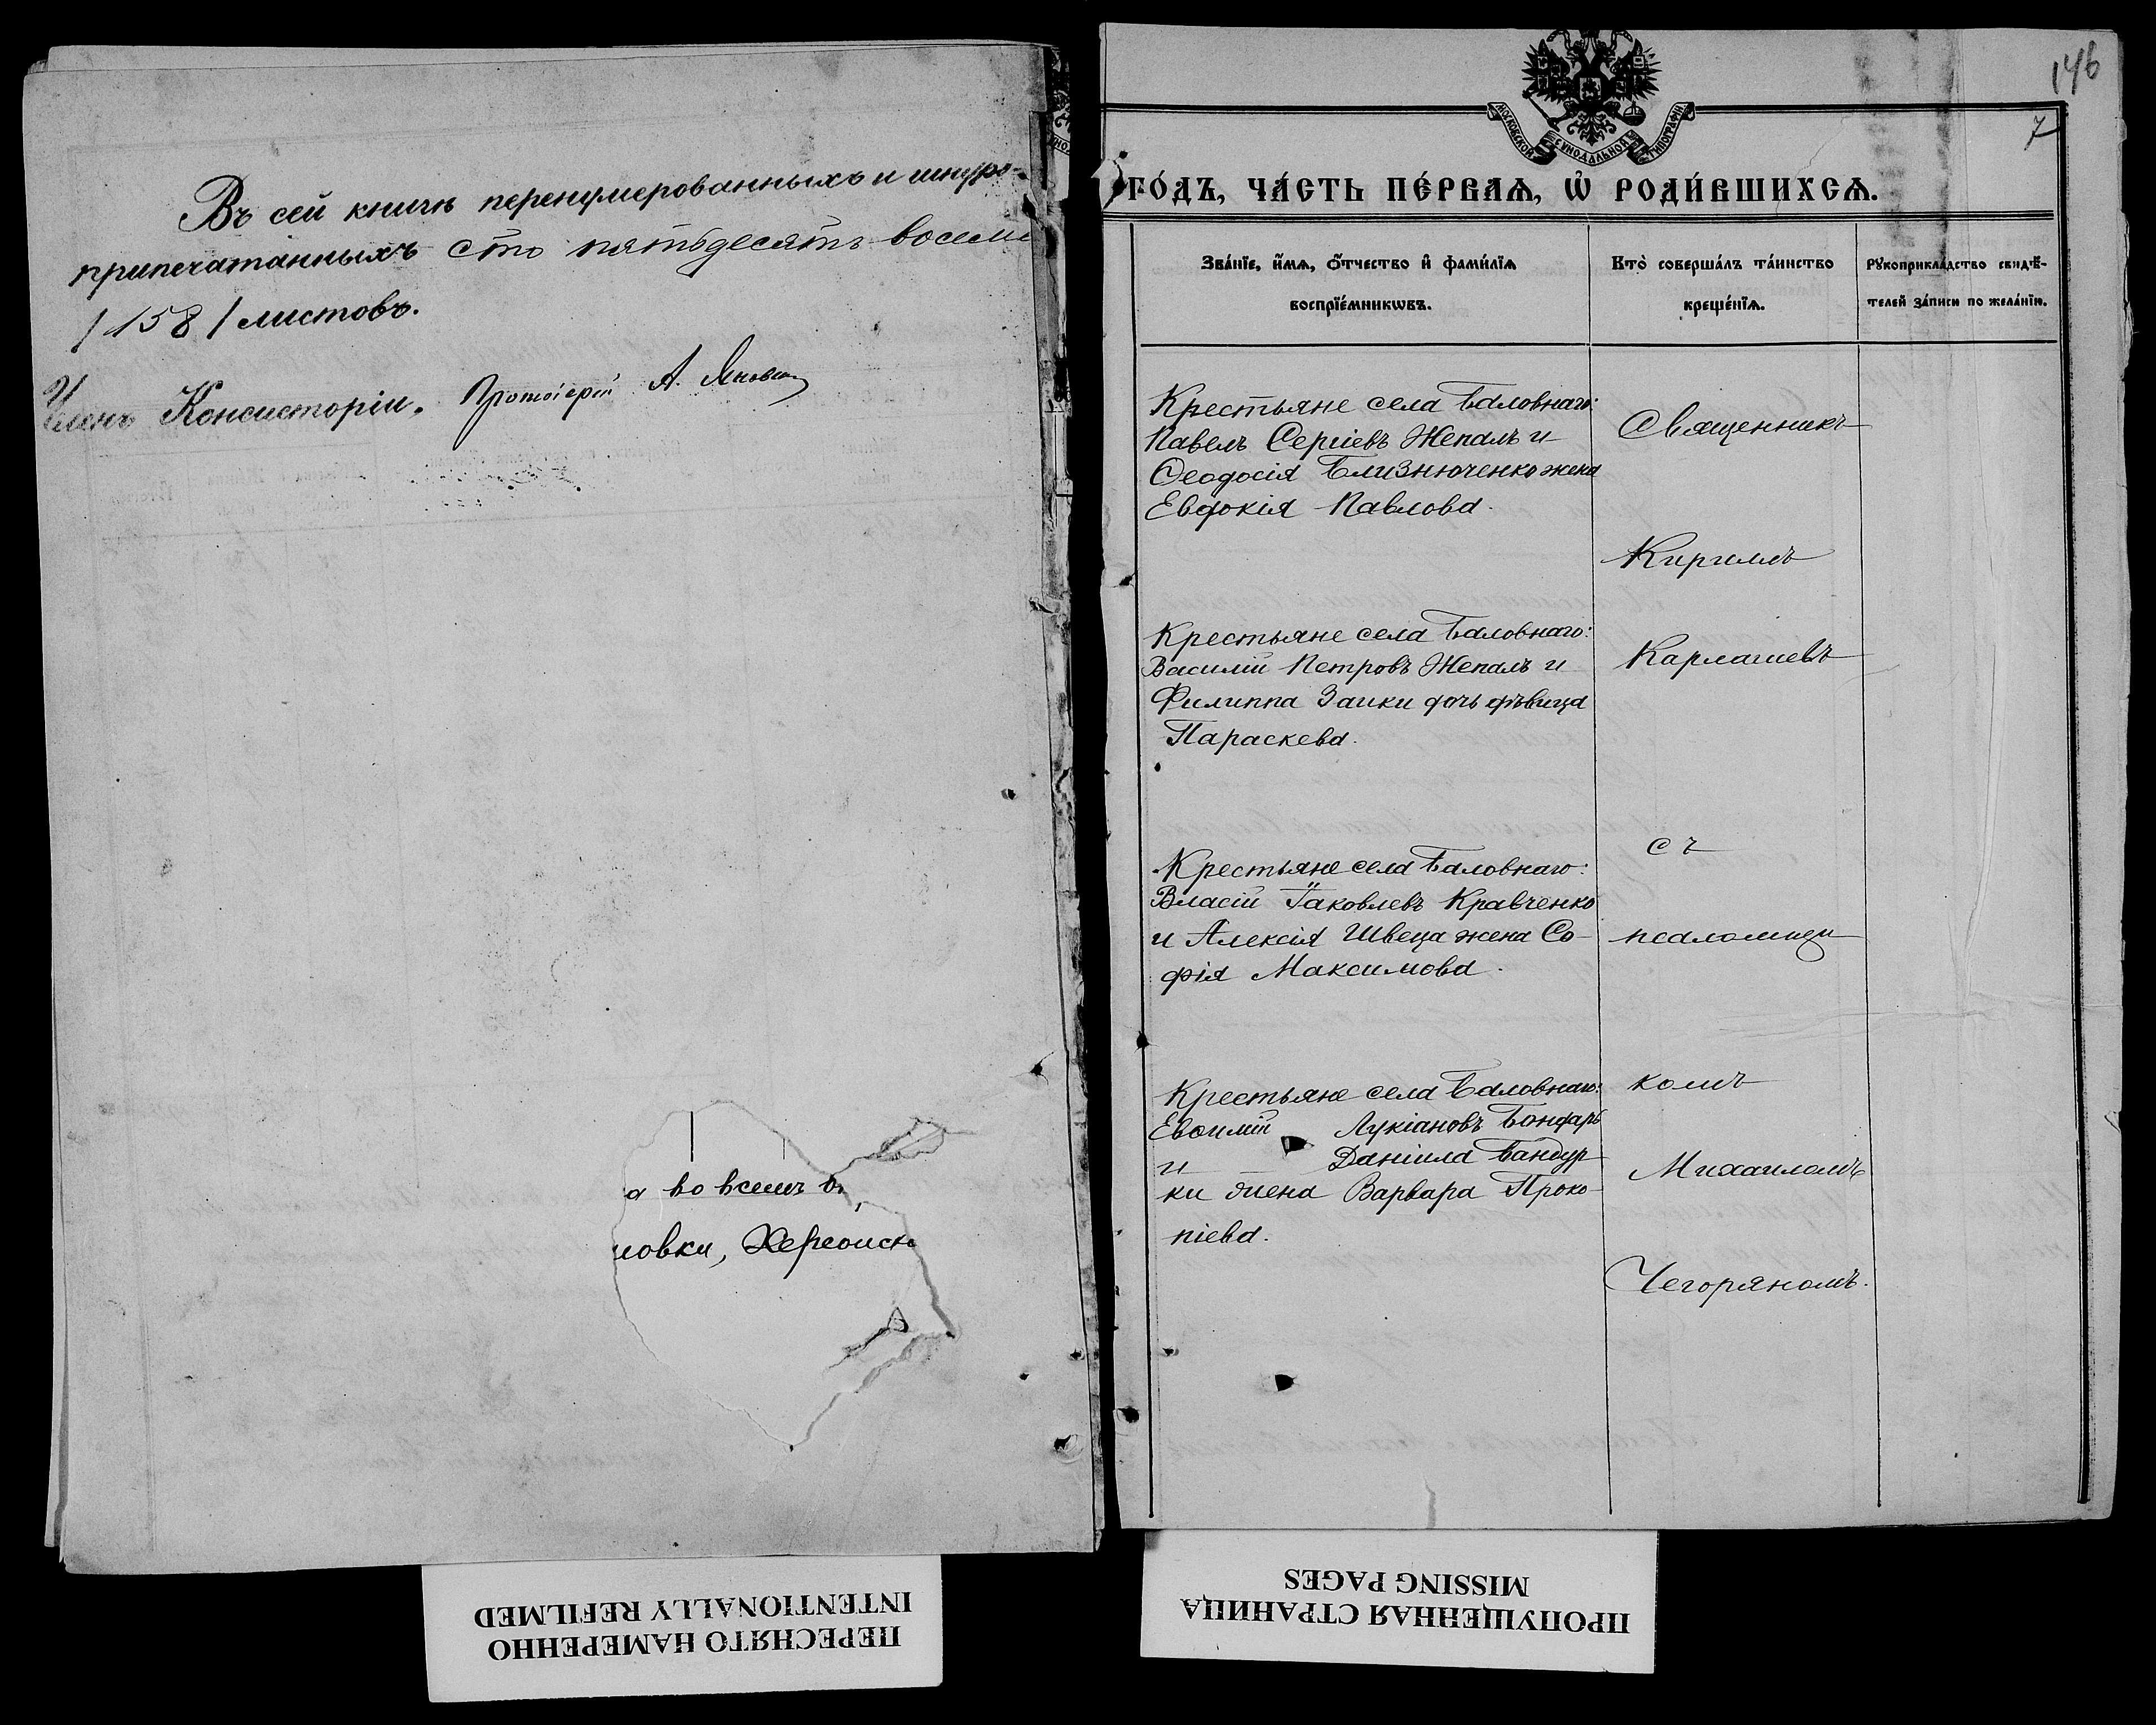 Въ сей книгѣ перенумерованныхъ и шнуро-
припечатанныхъ сто пятьдесятъ восемь
/ 158 / листовъ.
Членъ Консисторіи, Протоіерей А.
а во всемъ
ловки, Херсонск
146
7
МОСКОВСКОЙ СѴНОДАЛЬНОЙ ТИПОГРАФІИ
ГО́ДЪ, ЧА́СТЬ ПЕ́РВАѦ, Ѡ҆ РОДИ́ВШИХСѦ.
Зва́нїе, и҆́мѧ, ѻ҆́тчество и҆ фами́лїѧ
воспрїе́мникѡвъ.
Кто̀ соверша́лъ та́инство
креще́нїѧ.
Рꙋкоприкла́дство свидѣ́-
телей за́писи по жела́нїю.
Крестьяне села Баловнаго:
Павелъ Сергіевъ Жепалъ и
Ѳеодосія Близнюченко жена
Евдокія Павлова.
Священникъ
Кириллъ
Крестьяне села Баловнаго:
Василій Петровъ Жепалъ и
Филиппа Заики дочь дѣвица
Параскева.
Карлашевъ
съ
Крестьяне села Баловнаго:
Власій Іаковлевъ Кравченко
и Алексія Швеца жена Со-
фія Максимова.
псаломщи
Крестьяне села Баловнаго:
Евѳимій Лукіановъ Бондарь
и Даніила Бандур-
ки жена Варвара Проко-
піева.
комъ
Михаиломъ
Чегоряномъ.
ПЕРЕСНЯТО НАМЕРЕННО
INTENTIONALLY REFILMED
ПРОПУЩЕННАЯ СТРАНИЦА
MISSING PAGES